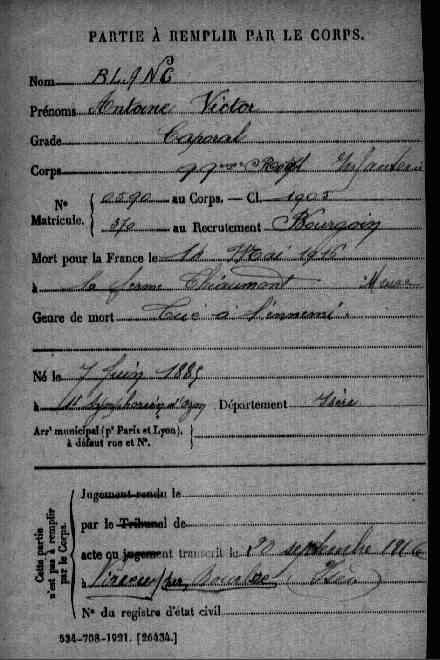 PARTIE À REMPLIR PAR LE CORPS.
Nom BLANC
Prénoms Antoine Victor
Grade Caporal
Corps 99me Regt Infanterie
Nº Matricule. 0590 au Corps. — Cl. 1905
370 au Recrutement Bourgoin
Mort pour la France le Mai 1916
à la ferme Thiaumont Meuse
Genre de mort Tué à l'ennemi.
Né le 7 Juin 1885
à St Symphorien d'Ozon Département Isère
Arrt municipal (pr Paris et Lyon), à défaut rue et Nº.
Cette partie n'est pas à remplir par le Corps.
Jugement rendu le
par le Tribunal de
acte ou jugement transcrit le 20 septembre 1916
à (Isère)
Nº du registre d'état civil
534-708-1921. [26434.]